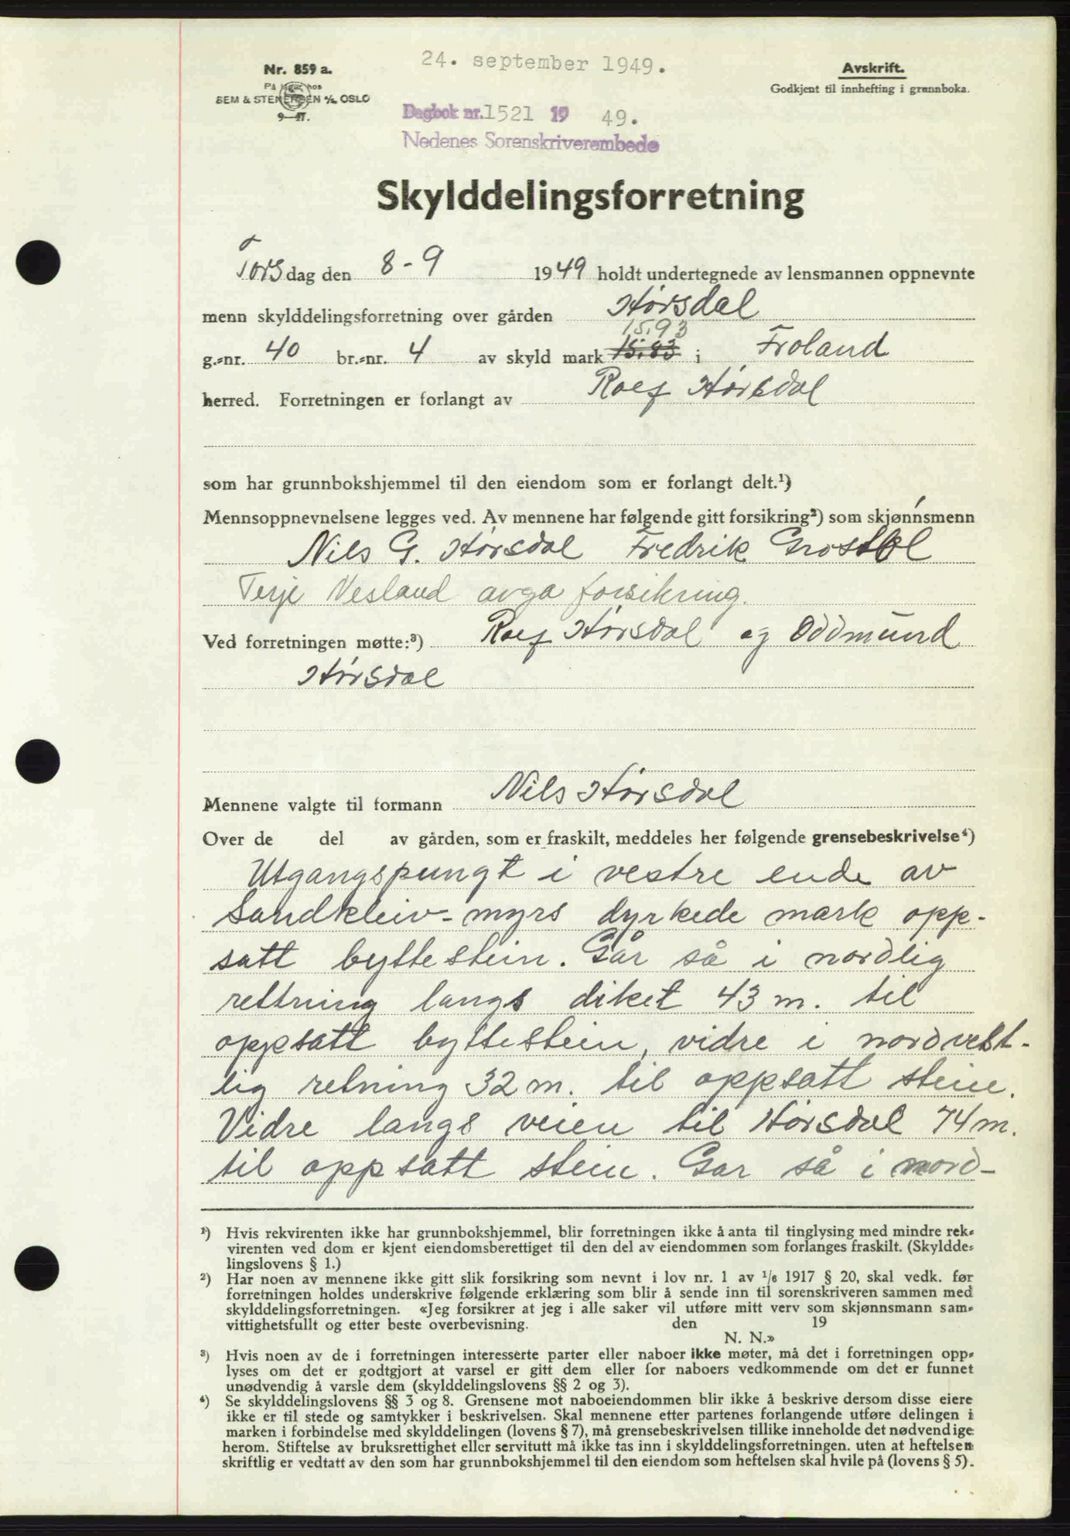 24. september 1949.
Nr. 859 a.
På lager hos
SEM & STENERSEN A/S OSLO
9—47.
Avskrift.
Godkjent til innhefting i grønnboka.
Dagbok nr. 1521 19 49.
Nedenes Sorenskriverembede
Skylddelingsforretning
Torsdag den 8-9 1949 holdt undertegnede av lensmannen oppnevnte
menn skylddelingsforretning over gården Hørsdal
15.93
g.-nr. 40 br.-nr. 4 av skyld mark 15.83 i Froland
herred. Forretningen er forlangt av Rolf Hørsdal
som har grunnbokshjemmel til den eiendom som er forlangt delt.¹)
Mennsoppnevnelsene legges ved. Av mennene har følgende gitt forsikring²) som skjønnsmenn
Nils G. Hørsdal Fredrik Grostøl
Terje Vesland avga forsikring.
Ved forretningen møtte:³) Rolf Hørsdal og Oddmund
Hørsdal
Mennene valgte til formann Nils Hørsdal
Over de del av gården, som er fraskilt, meddeles her følgende grensebeskrivelse⁴)
Utgangspungt i vestre ende av
Sandkleiv-myrs dyrkede mark opp-
satt byttestein. Går så i nordlig
rettning langs diket 43 m. til
oppsatt byttestein, vidre i nordvest-
lig retning 32 m. til oppsatt stein.
Vidre langs veien til Hørsdal 74 m.
til oppsatt stein. Gar så i nord-
¹) Hvis rekvirenten ikke har grunnbokshjemmel, blir forretningen ikke å anta til tinglysing med mindre rek-
virenten ved dom er kjent eiendomsberettiget til den del av eiendommen som forlanges fraskilt. (Skyldde-
lingslovens § 1.)
²) Har noen av mennene ikke gitt slik forsikring som nevnt i lov nr. 1 av 1/6 1917 § 20, skal vedk. før
forretningen holdes underskrive følgende erklæring som blir å sende inn til sorenskriveren sammen med
skylddelingsforretningen. «Jeg forsikrer at jeg i alle saker vil utføre mitt verv som skjønnsmann sam-
vittighetsfullt og etter beste overbevisning. den 19
N. N.»
³) Hvis noen av de i forretningen interesserte parter eller naboer ikke møter, må det i forretningen opp-
lyses om det er godtgjort at varsel er gitt dem eller for naboers vedkommende om det er funnet
unødvendig å varsle dem (skylddelingslovens §§ 2 og 3).
⁴) Se skylddelingslovens §§ 3 og 8. Grensene mot naboeiendommen blir ikke å beskrive dersom disse eiere
ikke er til stede og samtykker i beskrivelsen. Skal mennene etter partenes forlangende utføre delingen i
marken i forbindelse med skylddelingen (lovens § 7), må grensebeskrivelsen tillike inneholde det nødvendige
herom. Stiftelse av bruksrettighet eller servitutt må ikke tas inn i skylddelingsforretningen. uten at heftelsen
skriftlig er vedtatt av den som har grunnbokshjemmel til den eiendom som heftelsen skal hvile på (lovens § 5).